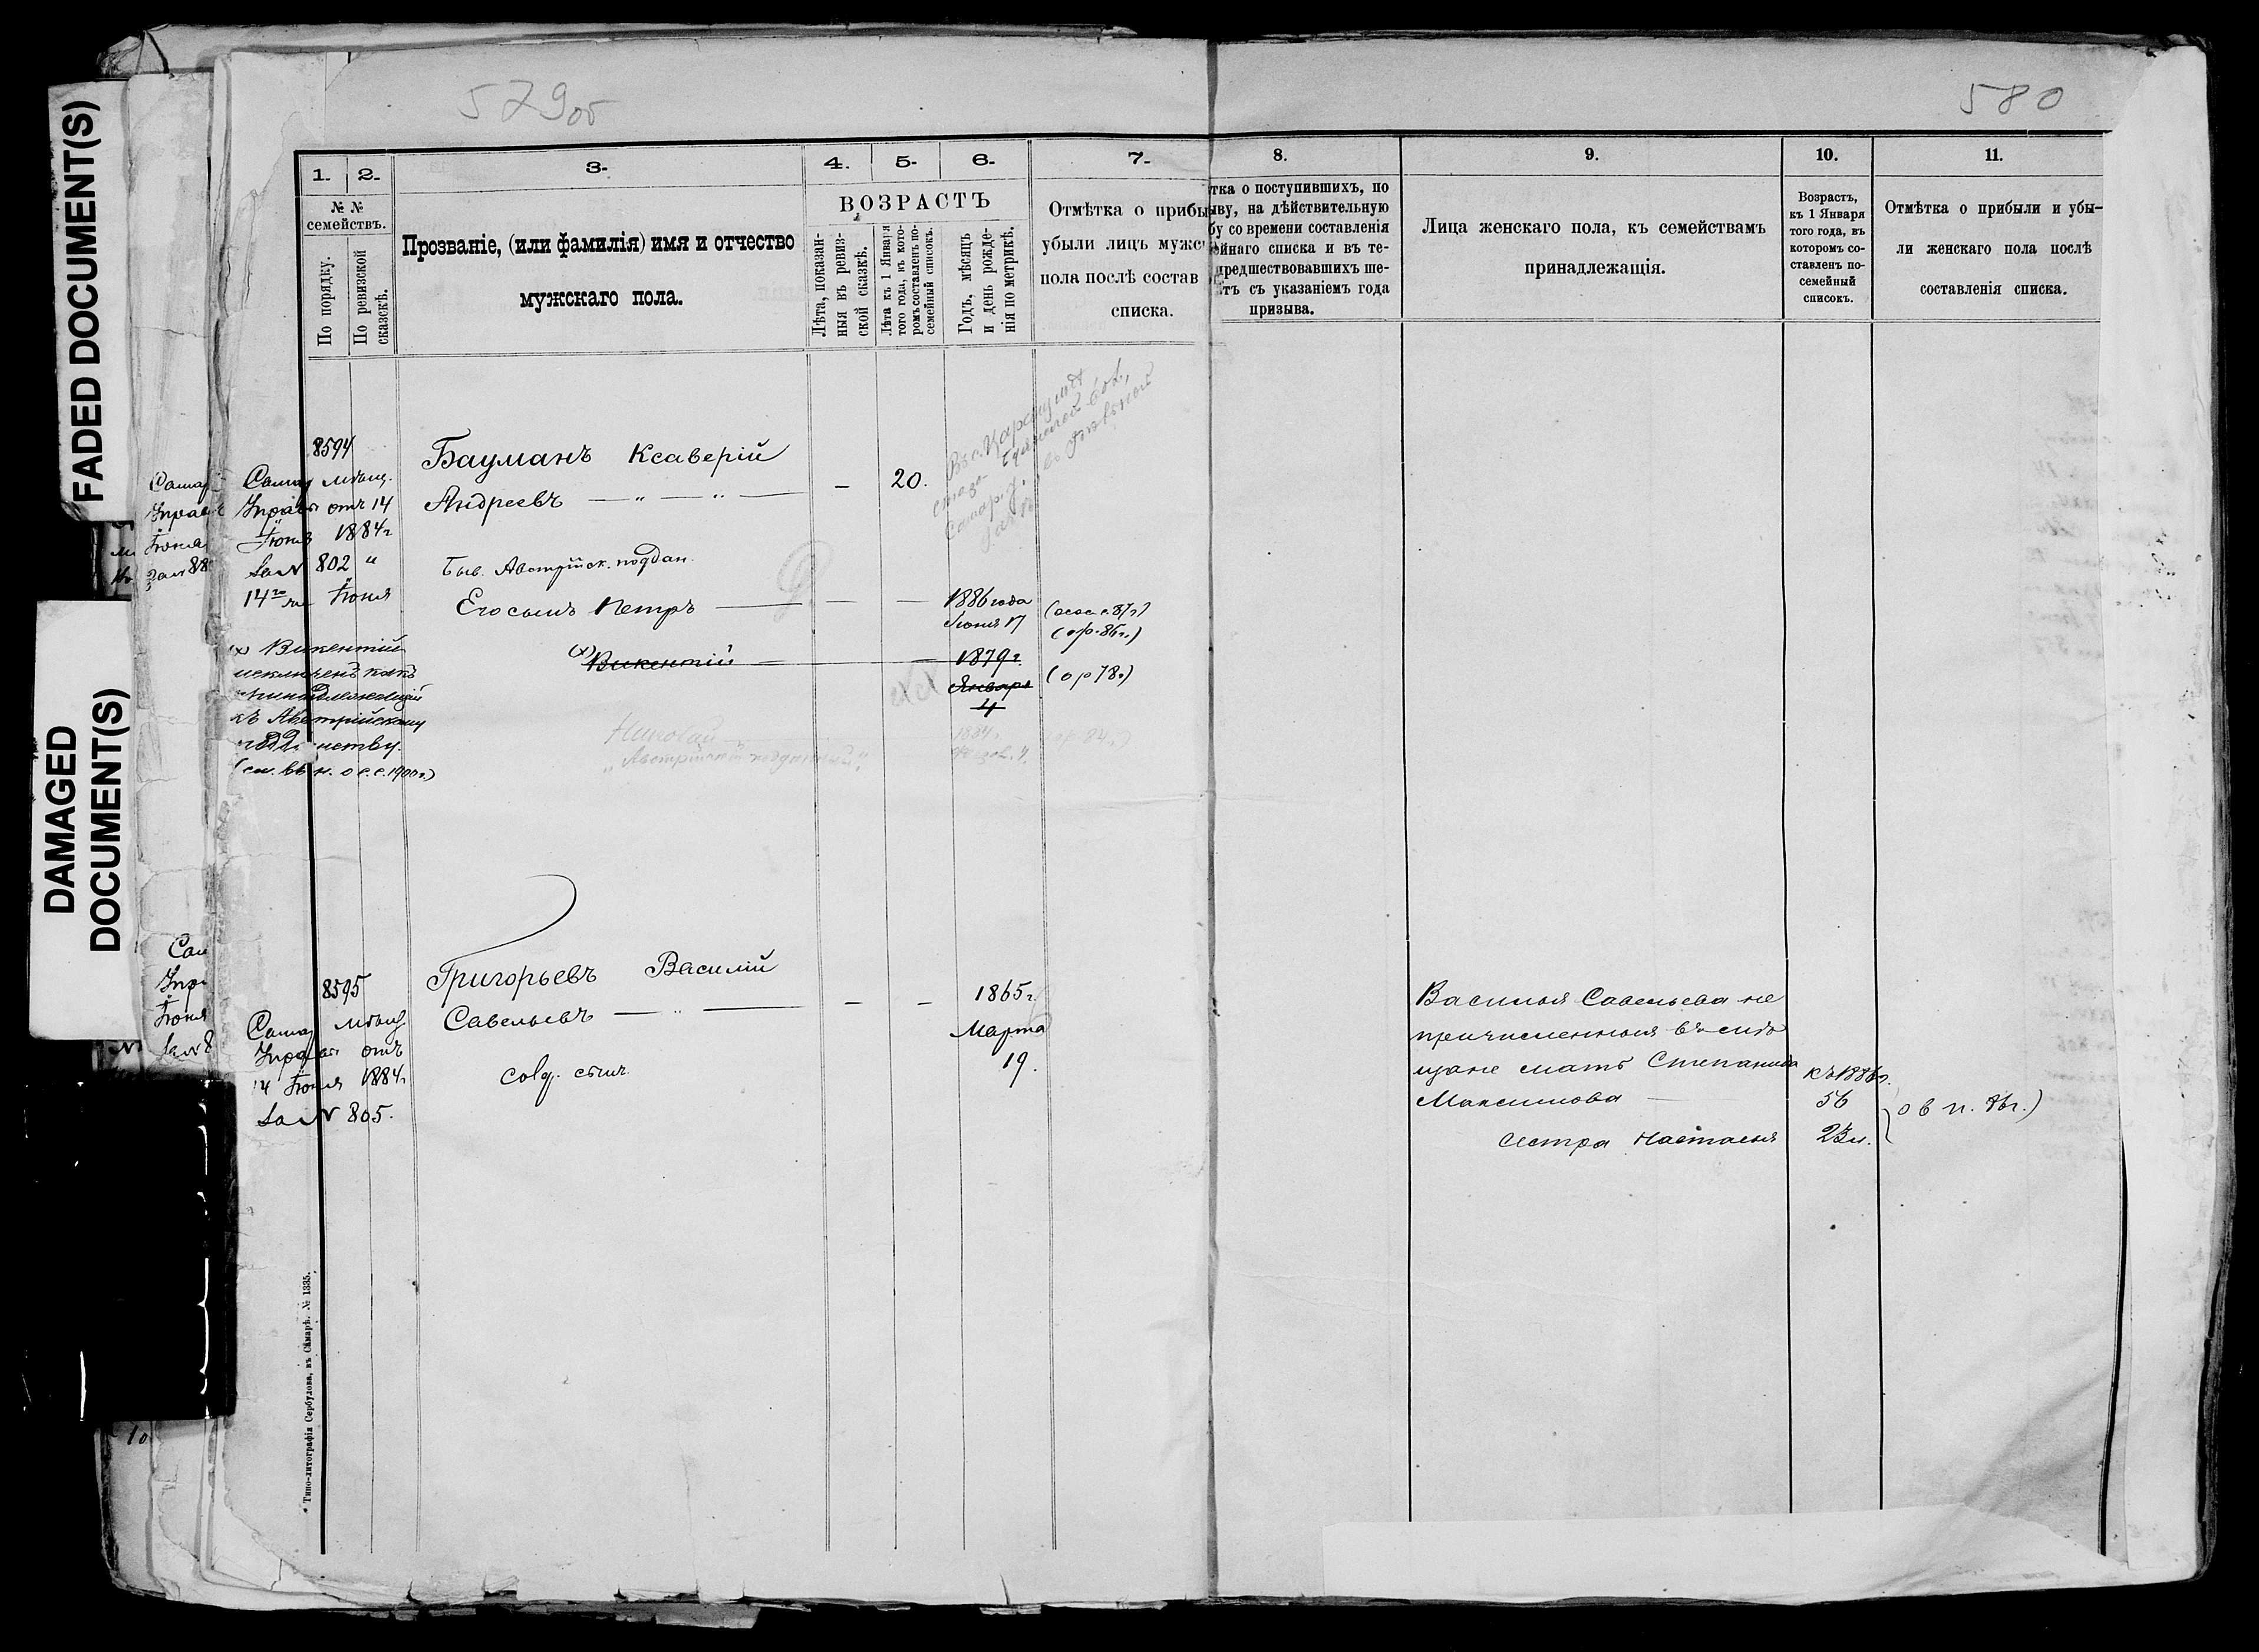 FADED DOCUMENT(S)
DAMAGED
DOCUMENT(S)
579об
580
1. 2. 3. 4. 5. 6. 7.
№ №
семействъ.
По порядку.
По ревизской
сказкѣ.
Прозваніе, (или фамилія) имя и отчество
мужскаго пола.
ВОЗРАСТЪ
Лѣта, показан-
ныя въ ревиз-
ской сказкѣ.
Лѣта къ 1 Января
того года, въ кото-
ромъ составленъ по-
семейный списокъ.
Годъ, мѣсяцъ
и день рожде-
нія по метрикѣ.
Отмѣтка о прибы
убыли лицъ мужс
пола послѣ состав
списка.
8. 9. 10. 11.
тка о поступившихъ, по
ыву, на дѣйствительную
бу со времени составленія
ейнаго списка и въ те-
предшествовавшихъ ше-
тъ съ указаніемъ года
призыва.
Лица женскаго пола, къ семействамъ
принадлежащія.
Возрастъ,
къ 1 Января
того года, въ
которомъ со-
ставленъ по-
семейный
списокъ.
Отмѣтка о прибыли и убы-
ли женскаго пола послѣ
составленія списка.
8594
Самар мѣщ.
Управы отъ 14
Іюня 1884г
за № 802 "
14го Іюня
Бауманъ Ксаверій
Андреевъ — " — " —
— 20.
Быв. Австрійск. подан.
Его сынъ Петръ — — —
1886 года
Іюня 17
(ор. 86г.)
(х) Викентій
1879г.
Января
4
(ор 78г)
(х) Викентій
исключенъ какъ
принадлежащій
къ Австрійскому
Николай
"Австрійскій подданный"
1884г.
8595
Самар мѣщ
Управы отъ
14 Іюня 1884г
за № 805.
Григорьевъ Василій
Савельевъ — " —
солд. сынъ
— — 1865г.
Марта
19.
Василья Савельева не
причисленныя въ
мать Степанида
Максимова —
къ 1886г.
56
сестра Настасья
23 л.
о в п. 86г.)
Типо-литографія Сербулова, въ Самарѣ. № 1335.